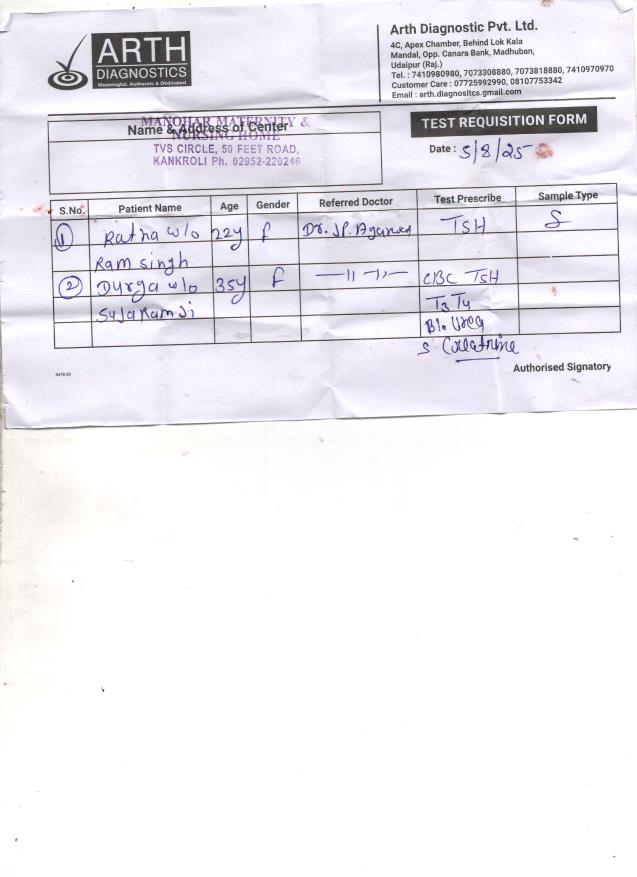 ARTH
DIAGNOSTICS
Meaningful, Authentic & Dedicated
Arth Diagnostic Pvt. Ltd.
4C, Apex Chamber, Behind Lok Kala
Mandal, Opp. Canara Bank, Madhuban,
Udaipur (Raj.)
Tel. : 7410980980, 7073308880, 7073818880, 7410970970
Customer Care : 07725992990, 08107753342
Email : arth.diagnositcs.gmail.com
MANOHAR MATERNITY &
Name & Address of Center
NURSING HOME
TVS CIRCLE, 50 FEET ROAD,
KANKROLI Ph. 02952-220246
TEST REQUISITION FORM
Date : 5/8/25
S.No. Patient Name Age Gender Referred Doctor Test Prescribe Sample Type
1 Ratna w/o 22y f Dr. J.P. TSH S
Ram singh
2 Durga w/o 35y f —11—11— CBC TSH
T3 T4
Sujaramji
Bl. Urea
S Creatnine
Authorised Signatory